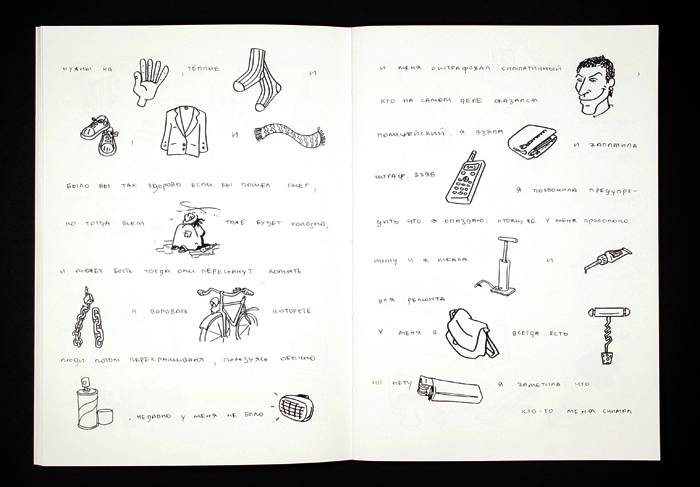 нужны на , тёплые и
, и
было бы так здорово если бы пошел снег,
но тогда всем тоже будет холодно,
и может быть тогда они перестанут ломать
и воровать которые
люди потом перекрашивают, пользуясь обычно
. недавно у меня не было
и меня оштрафовал симпатичный ,
кто на самом деле оказался
полицейский. я взяла и заплатила
штраф. взяв я позвонила предупре-
дить что я опаздаю. к тому же у меня прокололо
шину и я искала и
для ремонта
у меня в всегда есть
но нету я заметила что
кто-то меня снимал